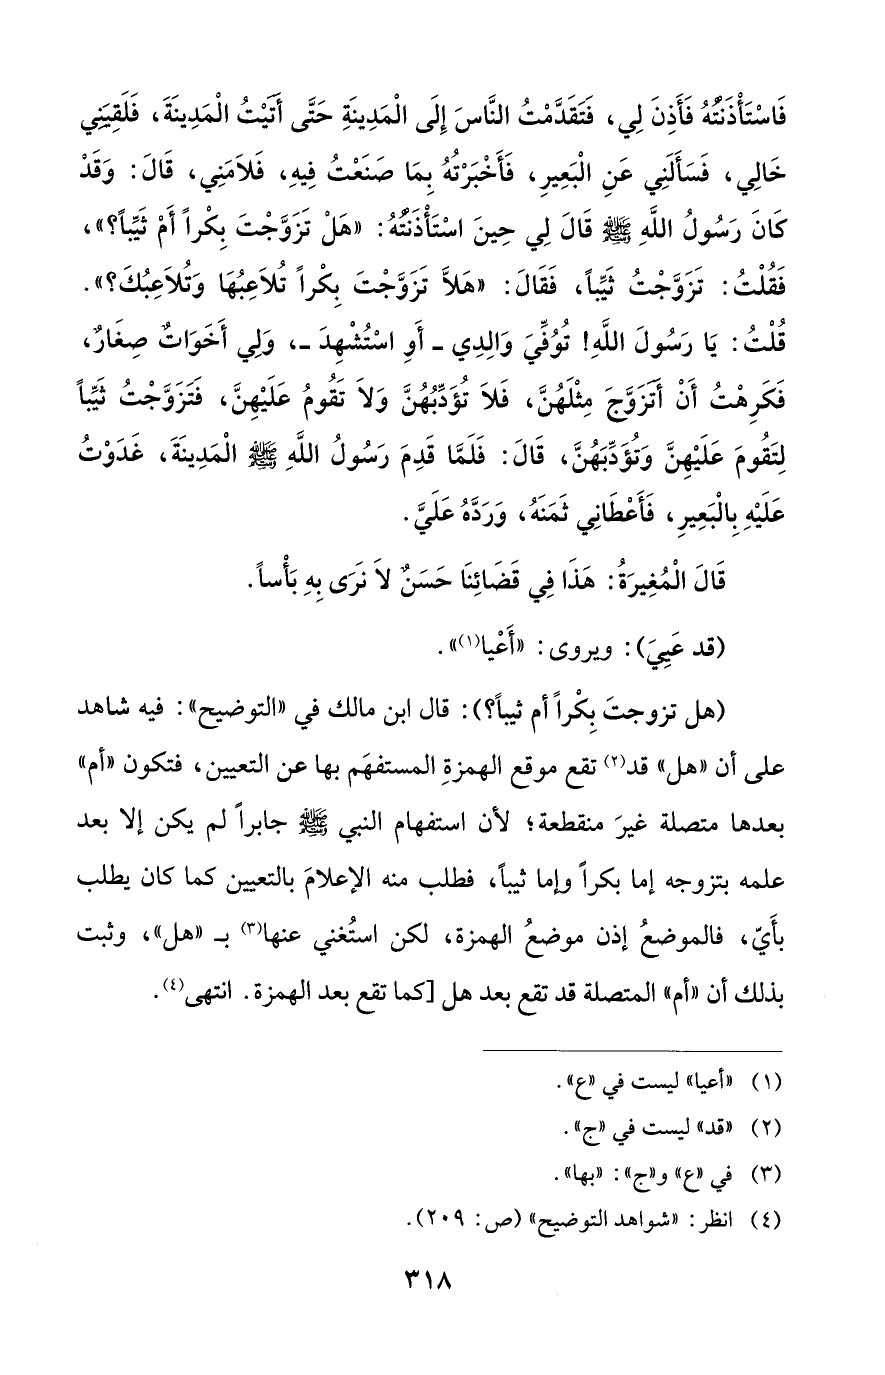 فَاسْتَأْذَنْتُهُ فَأَذِنَ لِي، فَتَقَدَّمْتُ النَّاسَ إِلَى الْمَدِينَةِ حَتَّى أَتَيْتُ الْمَدِينَةَ، فَلَقِيَنِي
خَالِي، فَسَأَلَنِي عَنِ الْبَعِيرِ، فَأَخْبَرْتُهُ بِمَا صَنَعْتُ فِيهِ، فَلاَمَنِي، قَالَ: وَقَدْ
كَانَ رَسُولُ اللَّهِ ﷺ قَالَ لِي حِينَ اسْتَأْذَنْتُهُ: «هَلْ تَزَوَّجْتَ بِكْراً أَمْ ثَيِّباً؟»،
فَقُلْتُ: تَزَوَّجْتُ ثَيِّباً، فَقَالَ: «هَلاَّ تَزَوَّجْتَ بِكْراً تُلاَعِبُهَا وَتُلاَعِبُكَ؟».
قُلْتُ: يَا رَسُولَ اللَّهِ! تُوُفِّيَ وَالِدِي ـ أَوِ اسْتُشْهِدَ ـ، وَلِي أَخَوَاتٌ صِغَارٌ،
فَكَرِهْتُ أَنْ أَتَزَوَّجَ مِثْلَهُنَّ، فَلاَ تُؤَدِّبُهُنَّ وَلاَ تَقُومُ عَلَيْهِنَّ، فَتَزَوَّجْتُ ثَيِّباً
لِتَقُومَ عَلَيْهِنَّ وَتُؤَدِّبَهُنَّ، قَالَ: فَلَمَّا قَدِمَ رَسُولُ اللَّهِ ﷺ الْمَدِينَةَ، غَدَوْتُ
عَلَيْهِ بِالْبَعِيرِ، فَأَعْطَانِي ثَمَنَهُ، وَرَدَّهُ عَلَيَّ.
قَالَ الْمُغِيرَةُ: هَذَا فِي قَضَائِنَا حَسَنٌ لاَ نَرَى بِهِ بَأْساً.
(قد عَيِيَ): ويروى: «أَعْيا(١)».
(هل تزوجتَ بِكْراً أم ثيباً؟): قال ابن مالك في «التوضيح»: فيه شاهد
على أن «هل» قد(٢) تقع موقع الهمزةِ المستفهَم بها عن التعيين، فتكون «أم»
بعدها متصلة غيرَ منقطعة؛ لأن استفهام النبي ﷺ جابراً لم يكن إلا بعد
علمه بتزوجه إما بكراً وإما ثيباً، فطلب منه الإعلامَ بالتعيين كما كان يطلب
بأَيّ، فالموضعُ إذن موضعُ الهمزة، لكن استُغني عنها(٣) بـ «هل»، وثبت
بذلك أن «أم» المتصلة قد تقع بعد هل [كما تقع بعد الهمزة. انتهى(٤).
(١) «أعيا» ليست في «ع».
(٢) «قد» ليست في «ج».
(٣) في «ع» و«ج»: «بها».
(٤) انظر: «شواهد التوضيح» (ص: ٢٠٩).
٣١٨